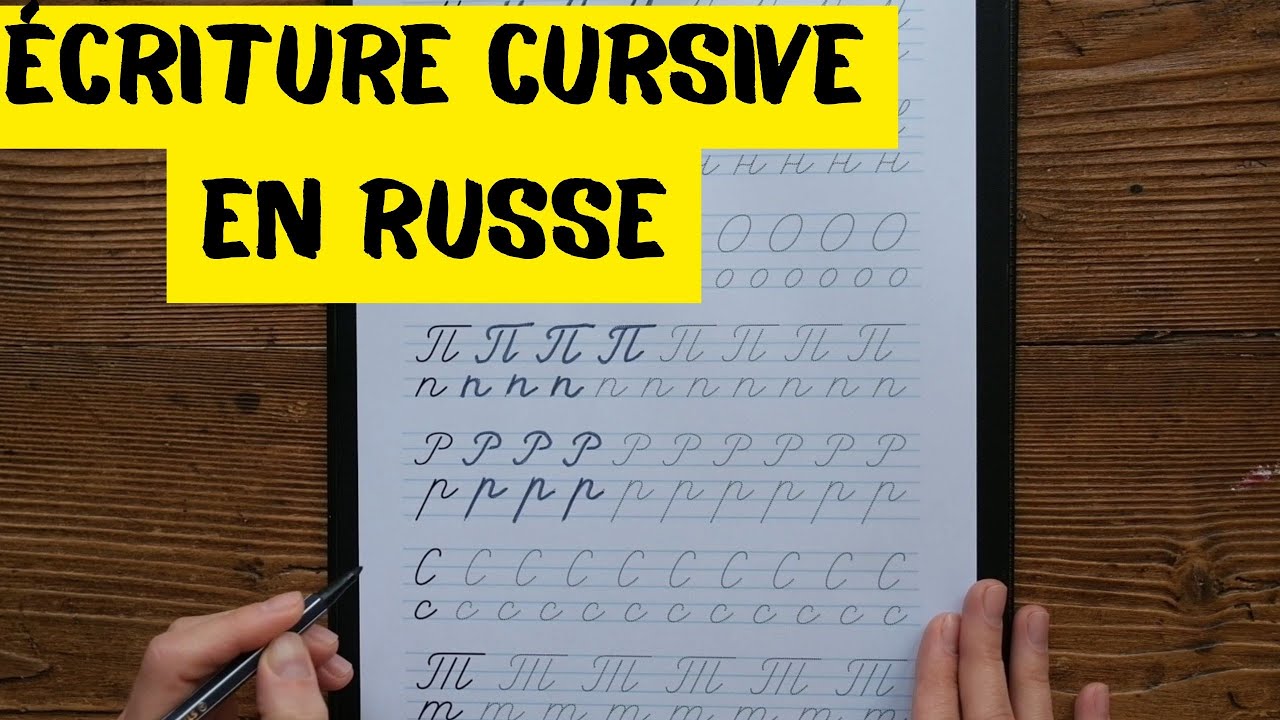 ÉCRITURE CURSIVE
EN RUSSE
н н н н
О О О О
о о о о о о
П П П П П П П П
п п п п п п п п п п п
Р Р Р Р Р Р Р Р Р Р
р р р р р р р р р р
С С С С С С С С С С
с с с с с с с с с с с с
Т Т Т Т Т Т
т т т т т т т т т